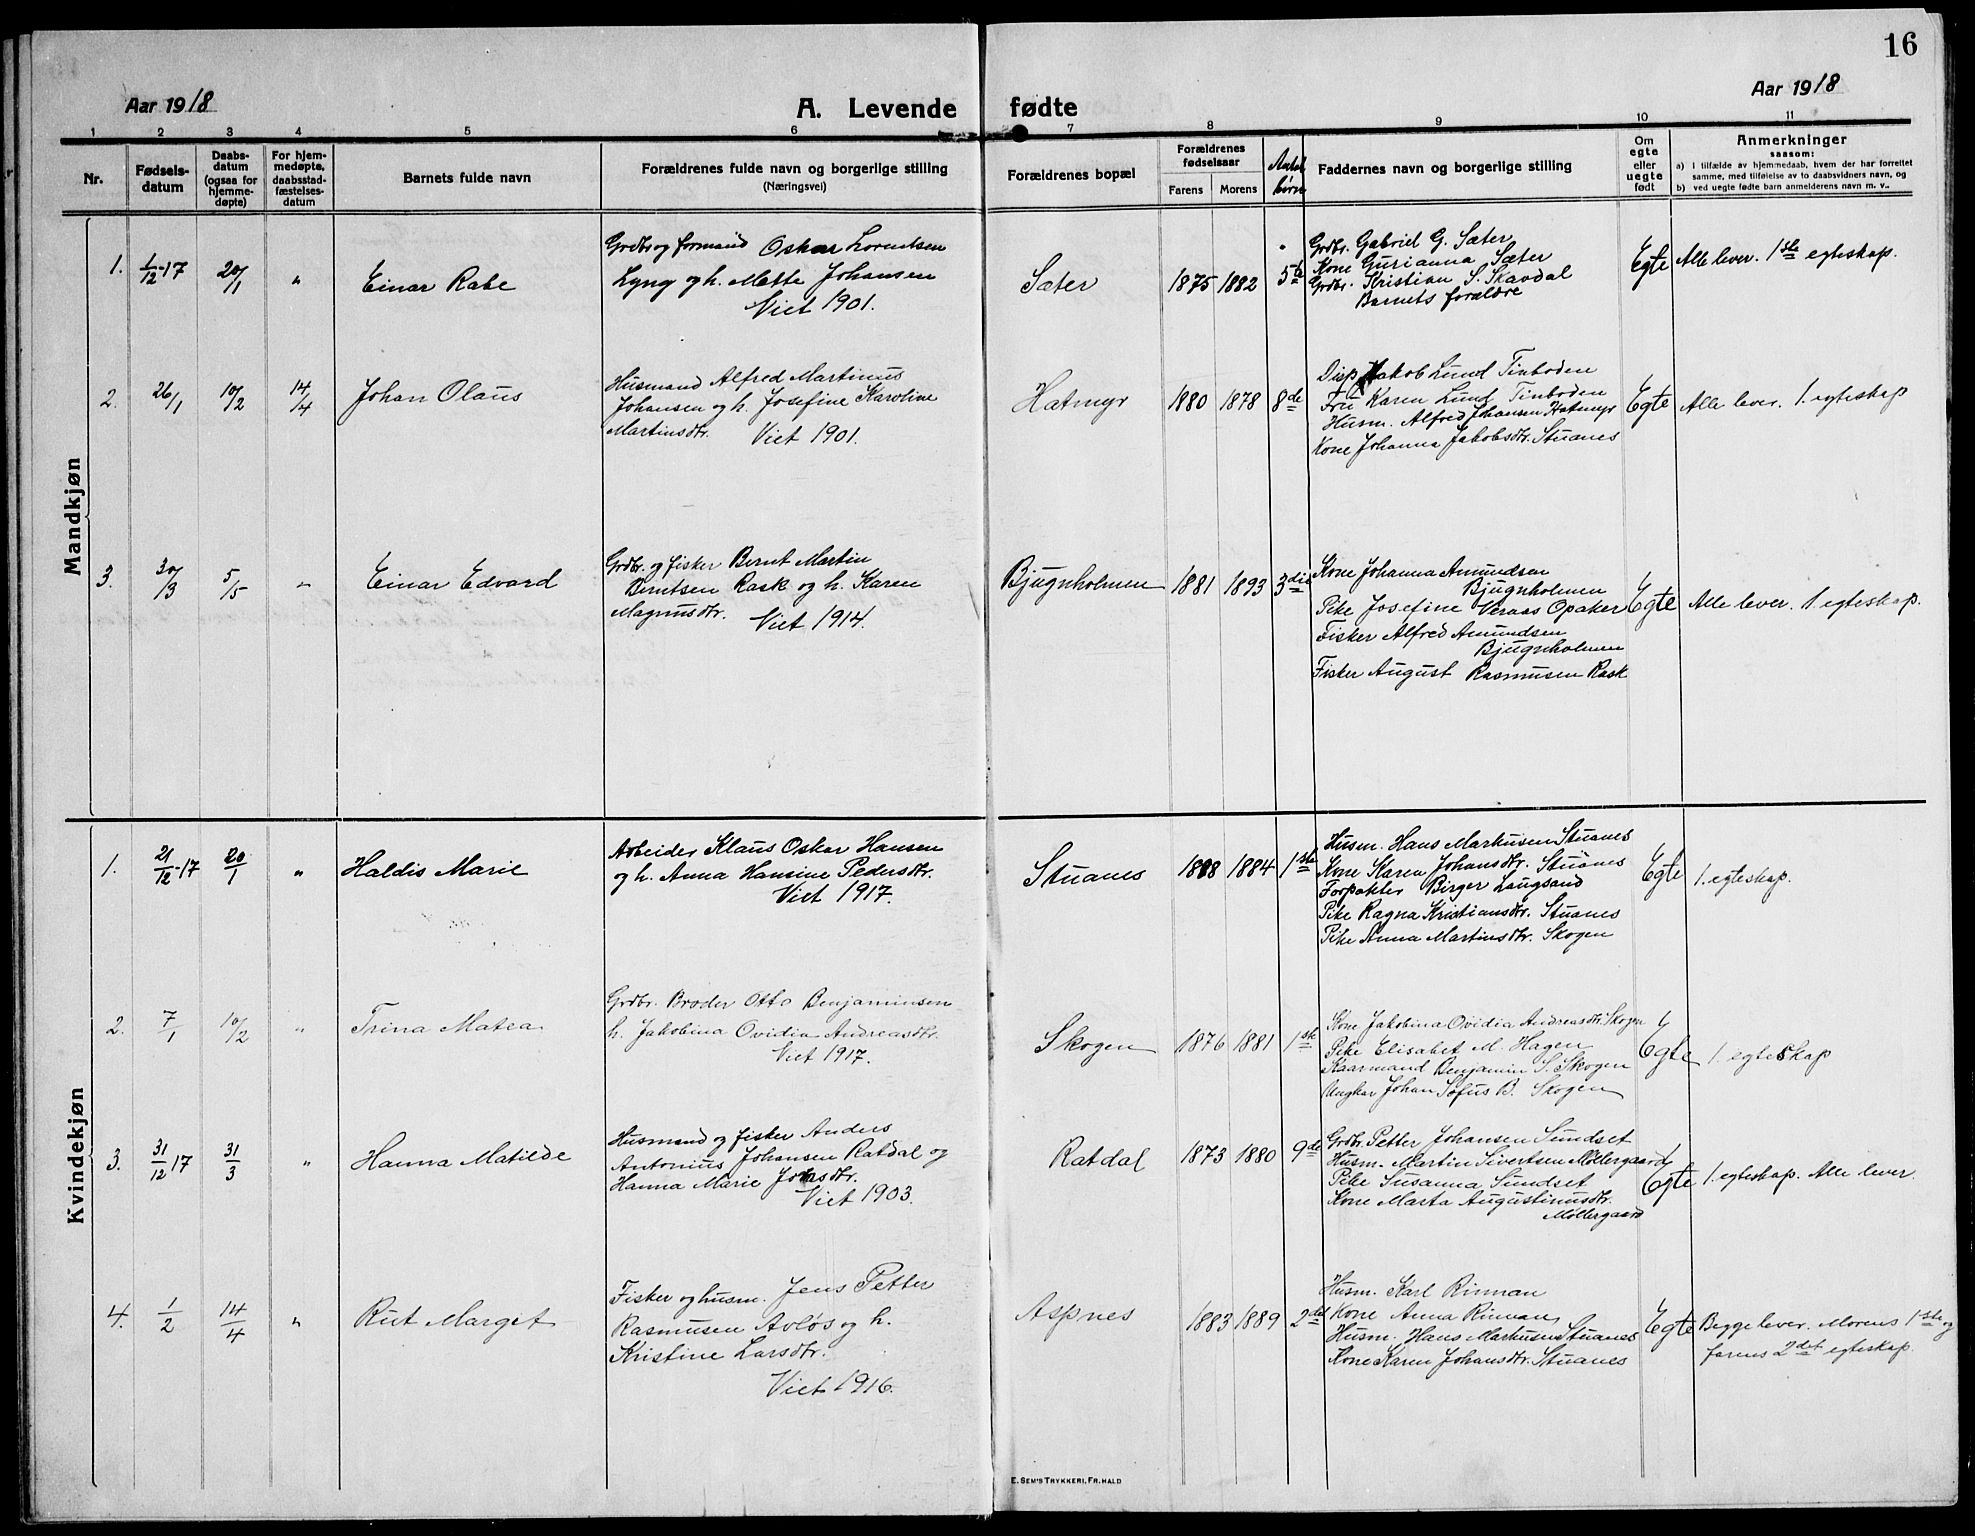 16
Aar 1918
A. Levende fødte
Aar 1918
1 2 3 4 5 6 7 8 9 10 11
Nr.
Fødsels-
datum
Daabs-
datum
(ogsaa for
hjemme-
døpte)
For hjem-
medøpte,
daabsstad-
fæstelses-
datum
Barnets fulde navn
Forældrenes fulde navn og borgerlige stilling
(Næringsvei)
Forældrenes bopæl
Forældrenes
fødselsaar
Farens Morens
Antal
børn
Faddernes navn og borgerlige stilling
Om
egte
eller
uegte
født
Anmerkninger
saasom:
a) i tilfælde av hjemmedaab, hvem der har forrettet
samme, med tilføielse av to daabsvidners navn, og
b) ved uegte fødte barn anmelderens navn m. v..
Mandkjøn
1. 1/12-17 20/1 " Einar Rabe
Grdbr og formand Oskar Lorentsen
Lyng og h. Mette Johansen
Viet 1901.
Sæter 1875 1882 5te
Grdbr. Gabriel G. Sæter
Kone Gurianna Sæter
Grdbr. Kristian S. Skavdal
Barnets forældre
Egte Alle lever. 1ste egteskap.
2. 26/1 10/2 14/4 Johan Olaus
Husmand Alfred Martinus
Johansen og h. Josefine Karoline
Martinsdtr. Viet 1901.
Hatmyr 1880 1878 8de
Disp. Jakob Lund Tinboden
Fru Karen Lund Tinboden
Husm. Alfred Johansen Hatmyr
Kone Johanna Jakobsdtr. Stuanes
Egte Alle lever. 1. egteskap
3. 30/3 5/5 " Einar Edvard
Grdbr. og fisker Bernt Martin
Berntsen Rask og h. Karen
Magnusdtr. Viet 1914.
Bjugnholmen 1881 1893 3die
Kone Johanna Amundsen
Bjugnholmen
Pike Josefine Veraas Opaker
Fisker Alfred Amundsen
Bjugnholmen
Fisker August Rasmusen Rask
Egte Alle lever. 1. egteskap.
Kvindekjøn
1. 21/12-17 20/1 " Haldis Marie
Arbeider Klaus Oskar Hansen
og h. Anna Hansine Pedersdtr.
Viet 1917.
Stuanes 1888 1884 1ste
Husm. Hans Markusen Stuanes
Kone Karen Johansdtr. Stuanes
Forpakter Birger Laugsand
Pike Ragna Kristiansdtr. Stuanes
Pike Anna Martinsdtr. Skogen
Egte 1. egteskap.
2. 7/1 10/2 " Trina Matea
Grdbr. Broder Otto Benjaminsen
h. Jakobina Ovidia Andreasdtr.
Viet 1917.
Skogen 1876 1881 1ste
Kone Jakobina Ovidia Andreasdtr. Skogen
Pike Elisabet M. Hagen
Kaarmand Benjamin S. Skogen
Ungkar Johan Sofus B. Skogen
Egte 1. egteskap
3. 31/12 17 31/3 " Hanna Matilde
Husmand og fisker Anders
Antonius Johansen Ratdal og
Hanna Marie Johsdtr.
Viet 1903.
Ratdal 1873 1880 9de
Grdbr. Petter Johansen Sundset
Husm. Martin Sivertsen Møllergaard
Pike Susanna Sundset
Kone Marta Augustinusdtr.
Møllergaard
Egte 1. egteskap. Alle lever.
4. 1/2 14/4 " Rut Marget
Fisker og husm. Jens Petter
Rasmusen Avløs og h.
Kristine Larsdtr.
Viet 1916.
Aspnes 1883 1889 2det
Husm. Karl Rinnan
Kone Anna Rinnan
Husm. Hans Markusen Stuanes
Kone Karen Johansdtr. Stuanes
Egte Begge lever. Morens 1ste og
farens 2det egteskap.
E. SEM'S TRYKKERI, FR.HALD